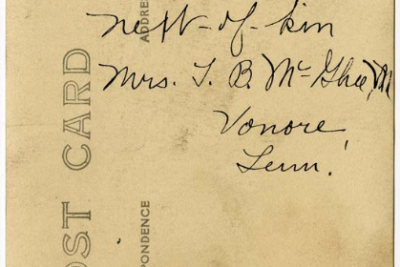 next-of-kin
Mrs. T. B. McGhee, M
Vonore,
Tenn.
POST CARD
ADDRE
PONDENCE